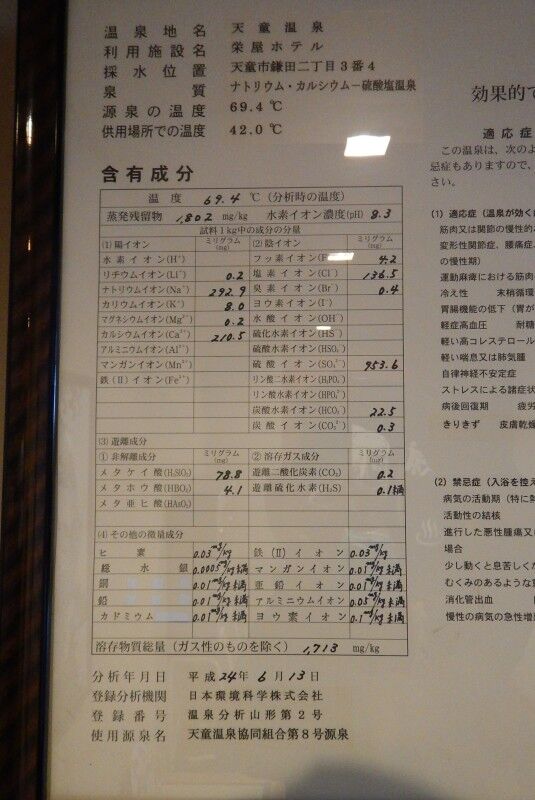 温泉地名 天童温泉
利用施設名 栄屋ホテル
採水位置 天童市鎌田二丁目3番4
泉質 ナトリウム・カルシウム－硫酸塩温泉
源泉の温度 69.4 ℃
供用場所での温度 42.0 ℃
含有成分
温度 69.4 ℃ (分析時の温度)
蒸発残留物 1,802 mg/kg 水素イオン濃度(pH) 8.3
試料1kg中の成分の分量
(1)陽イオン ミリグラム(mg) (2)陰イオン ミリグラム(mg)
水素イオン(H⁺) フッ素イオン(F 4.2
リチウムイオン(Li⁺) 0.2 塩素イオン(Cl⁻) 136.5
ナトリウムイオン(Na⁺) 292.9 臭素イオン(Br⁻) 0.4
カリウムイオン(K⁺) 8.0 ヨウ素イオン(I⁻)
マグネシウムイオン(Mg²⁺) 0.2 水酸イオン(OH⁻)
カルシウムイオン(Ca²⁺) 210.5 硫化水素イオン(HS⁻)
アルミニウムイオン(Al³⁺) 硫酸水素イオン(HSO₄⁻)
マンガンイオン(Mn²⁺) 硫酸イオン(SO₄²⁻) 953.6
鉄(II)イオン(Fe²⁺) リン酸二水素イオン(H₂PO₄⁻)
リン酸水素イオン(HPO₄²⁻)
炭酸水素イオン(HCO₃⁻) 22.5
炭酸イオン(CO₃²⁻) 0.3
(3)遊離成分
①非解離成分 ミリグラム(mg) ②溶存ガス成分 ミリグラム(mg)
メタケイ酸(H₂SiO₃) 78.8 遊離二酸化炭素(CO₂) 0.2
メタホウ酸(HBO₂) 4.1 遊離硫化水素(H₂S) 0.1未満
メタ亜ヒ酸(HAsO₂)
(4)その他の微量成分
ヒ素 0.03mg/kg 鉄(II)イオン 0.03mg/kg
総水銀 0.0005mg/kg未満 マンガンイオン 0.01mg/kg未満
銅 0.01mg/kg未満 亜鉛イオン 0.01mg/kg未満
鉛 0.01mg/kg未満 アルミニウムイオン 0.05mg/kg未満
カドミウム 0.01mg/kg未満 ヨウ素イオン 0.1mg/kg未満
溶存物質総量(ガス性のものを除く) 1,713 mg/kg
分析年月日 平成24年6月13日
登録分析機関 日本環境科学株式会社
登録番号 温泉分析山形第2号
使用源泉名 天童温泉協同組合第8号源泉
効果的で
適応症
この温泉は、次のよ
忌症もありますので、
さい。
(1) 適応症 (温泉が効く
筋肉又は関節の慢性的
変形性関節症、腰痛症、
の慢性期)
運動麻痺における筋肉
冷え性 末梢循環
胃腸機能の低下(胃が
軽症高血圧 耐糖
軽い高コレステロール
軽い喘息又は肺気腫
自律神経不安定症
ストレスによる諸症状
病後回復期 疲労
きりきず 皮膚乾燥
(2) 禁忌症 (入浴を控え
病気の活動期 (特に熱
活動性の結核
進行した悪性腫瘍又
場合
少し動くと息苦しくな
むくみのあるような重
消化管出血
慢性の病気の急性増